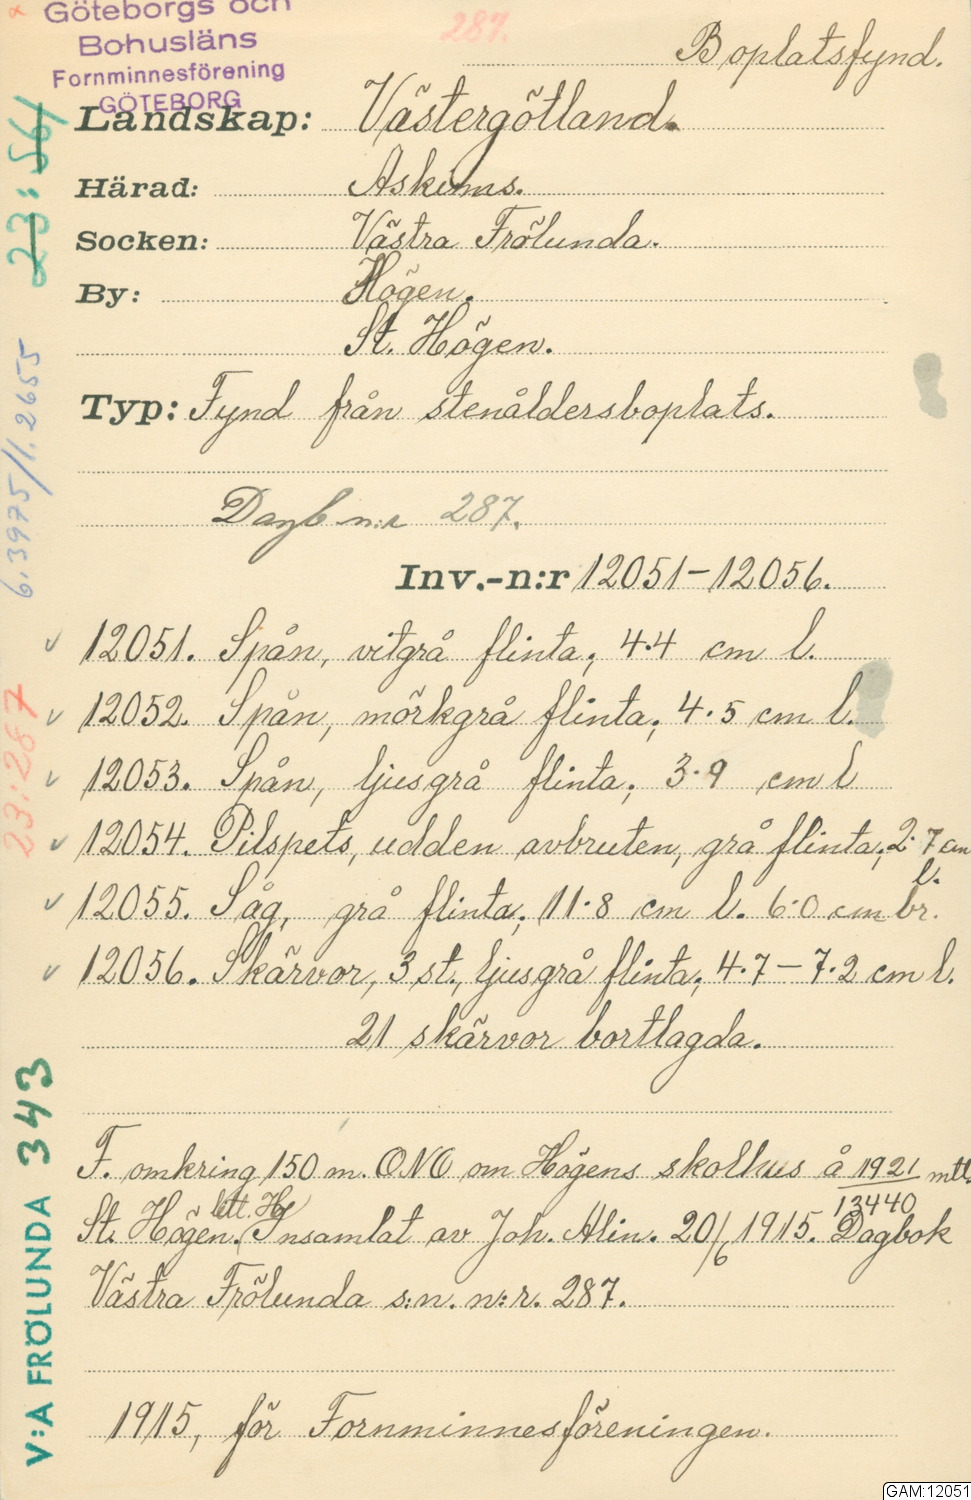 Göteborgs och
Bohusläns
Fornminnesförening
GÖTEBORG
287.
Boplatsfynd.
Landskap: Västergötland.
Härad: Askims.
Socken: Västra Frölunda.
By: Högen.
St. Högen.
Typ: Fynd från stenåldersboplats.
Dagb n:r 287.
Inv.-n:r 12051-12056.
12051. Spån, vitgrå flinta; 4.4 cm l.
12052. Spån, mörkgrå flinta; 4.5 cm l.
12053. Spån, ljusgrå flinta; 3.9 cm l
12054. Pilspets, udden avbruten, grå flinta; 2.7 cm
l.
12055. Såg, grå flinta; 11.8 cm l. 6.0 cm br.
12056. Skärvor, 3 st., ljusgrå flinta; 4.7-7.2 cm l.
21 skärvor bortlagda.
F. omkring 150 m. ONO om Högens skolhus å 1921 mtt.
13440
litt. Hg
St. Högen. Insamlat av Joh. Alin. 20/6 1915. Dagbok
Västra Frölunda s:n. n:r. 287.
1915, för Fornminnesföreningen.
23:56
6.3975/1.2655
23:287
V:A FRÖLUNDA 343
GAM:12051